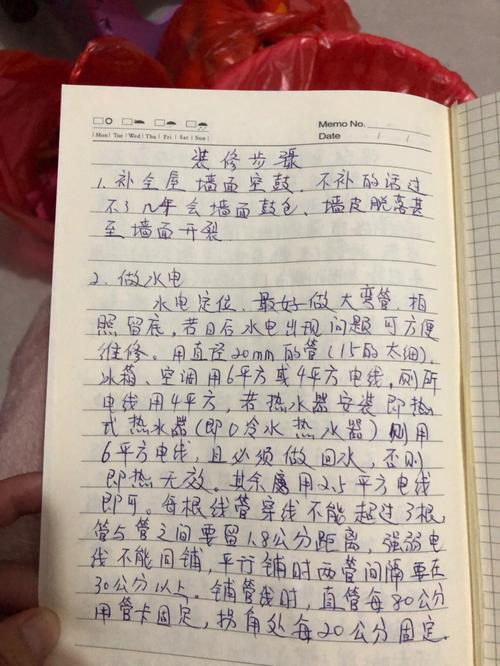 Memo No.
Mon Tue Wed Thu Fri Sat Sun
Date / /
装修步骤
1. 补全屋墙面空鼓. 不补的话过
不了几年会墙面鼓包、墙皮脱离甚
至墙面开裂
2. 做水电
水电定位. 最好做大弯管. 拍
照留底, 若日后水电出现问题可方便
维修. 用直径20mm的管(15的太细).
冰箱、空调用6平方或4平方电线, 厕所
电线用4平方, 若热水器安装即热
式热水器(即0冷水热水器)则用
6平方电线, 且必须做回水, 否则
即热无效. 其余属用2.5平方电线
即可. 每根线管穿线不能超过3根
管与管之间要留1.8公分距离, 强弱电
线不能同铺, 平行铺时两管间隔要在
30公分以上. 铺管线时, 直管每80公分
用管卡固定, 拐角处每20公分固定.